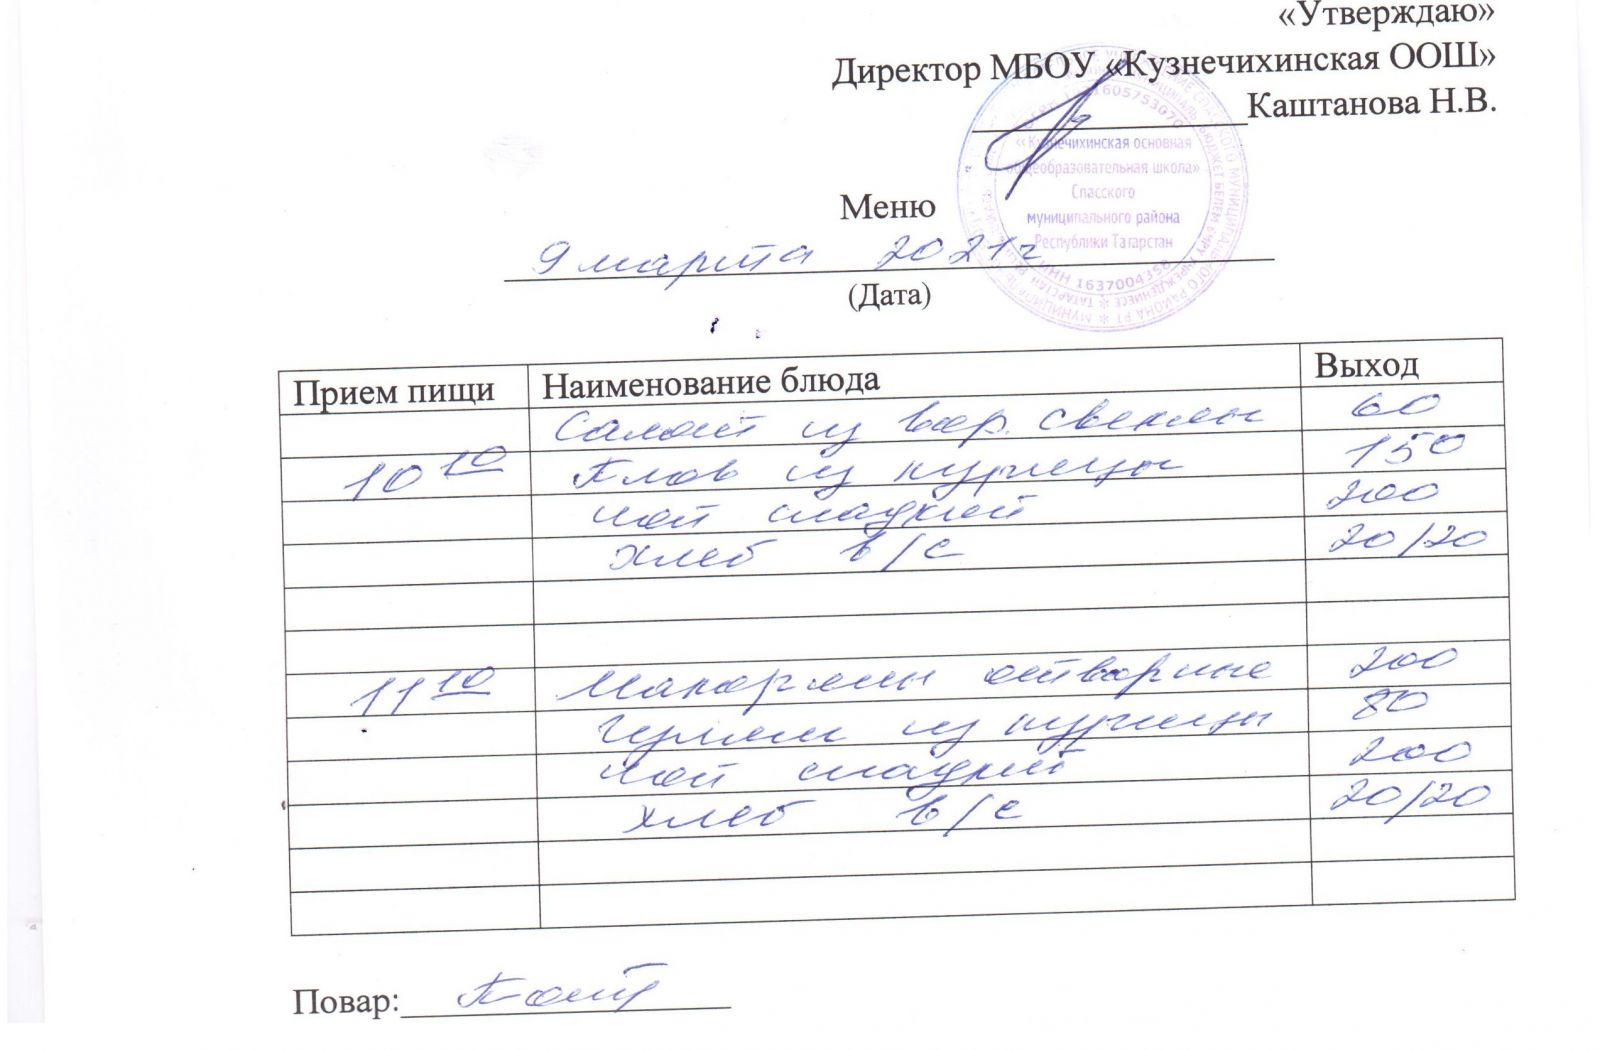 «Утверждаю»
Директор МБОУ «Кузнечихинская ООШ»
Каштанова Н.В.
«Кузнечихинская основная
общеобразовательная школа»
Спасского
муниципального района
Республики Татарстан
ИНН 1637004358
Меню
9 марта 2021 г
(Дата)
Прием пищи Наименование блюда Выход
Салат из вар. свеклы 60
10 10 Плов из курицы 150
чай сладкий 200
хлеб в/с 20/20
11 10 Макароны отварные 200
Гуляш из курицы 80
чай сладкий 200
хлеб в/с 20/20
Повар: